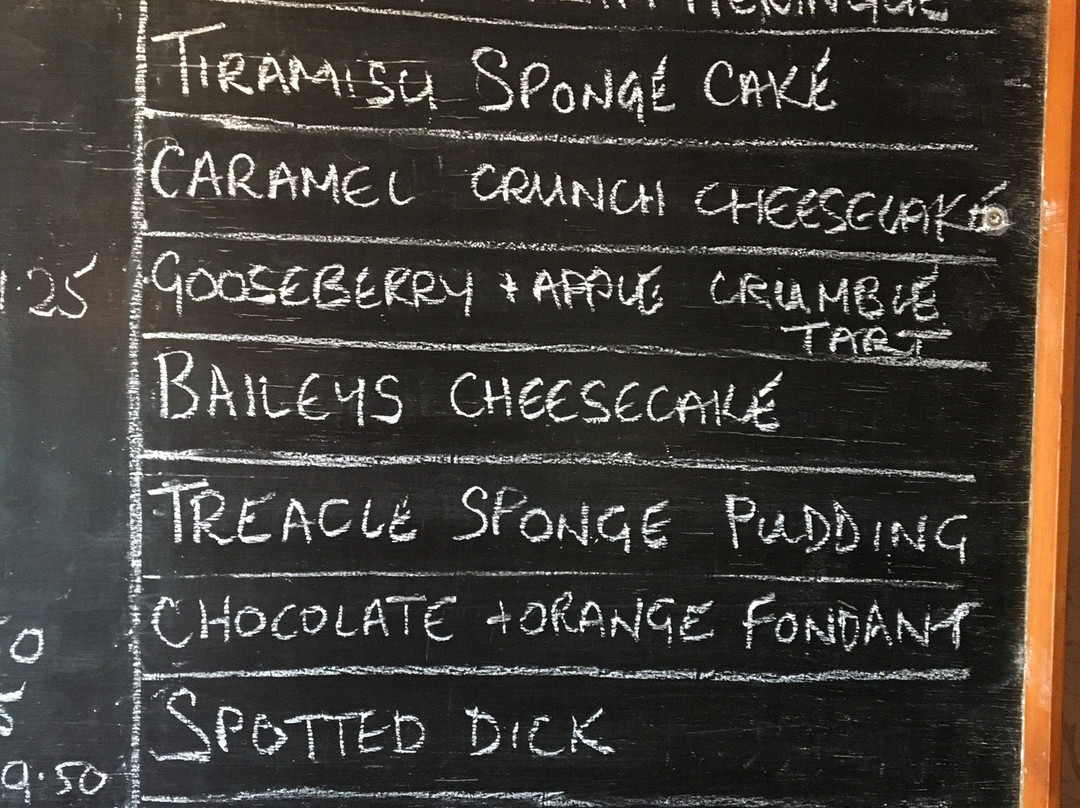 TIRAMISU SPONGE CAKE
CARAMEL CRUNCH CHEESECAKE
GOOSEBERRY + APPLE CRUMBLE
TART
BAILEYS CHEESECAKE
TREACLE SPONGE PUDDING
CHOCOLATE + ORANGE FONDANT
SPOTTED DICK
9.50